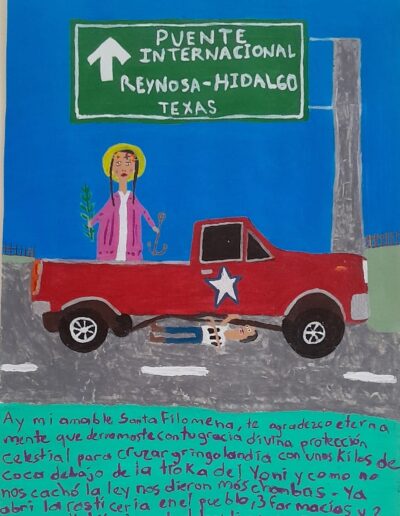 PUENTE
INTERNACIONAL
REYNOSA-HIDALGO
TEXAS
Ay mi amable Santa Filomena, te agradezco eterna
mente que derramaste con tu gracia divina protección
celestial para cruzar gringolandia con unos kilos de
coca debajo de la troka del Yoni y como no
nos cachó la ley nos dieron más chambas. Ya
abrí la rosticería en el pueblo, 3 farmacias y 2